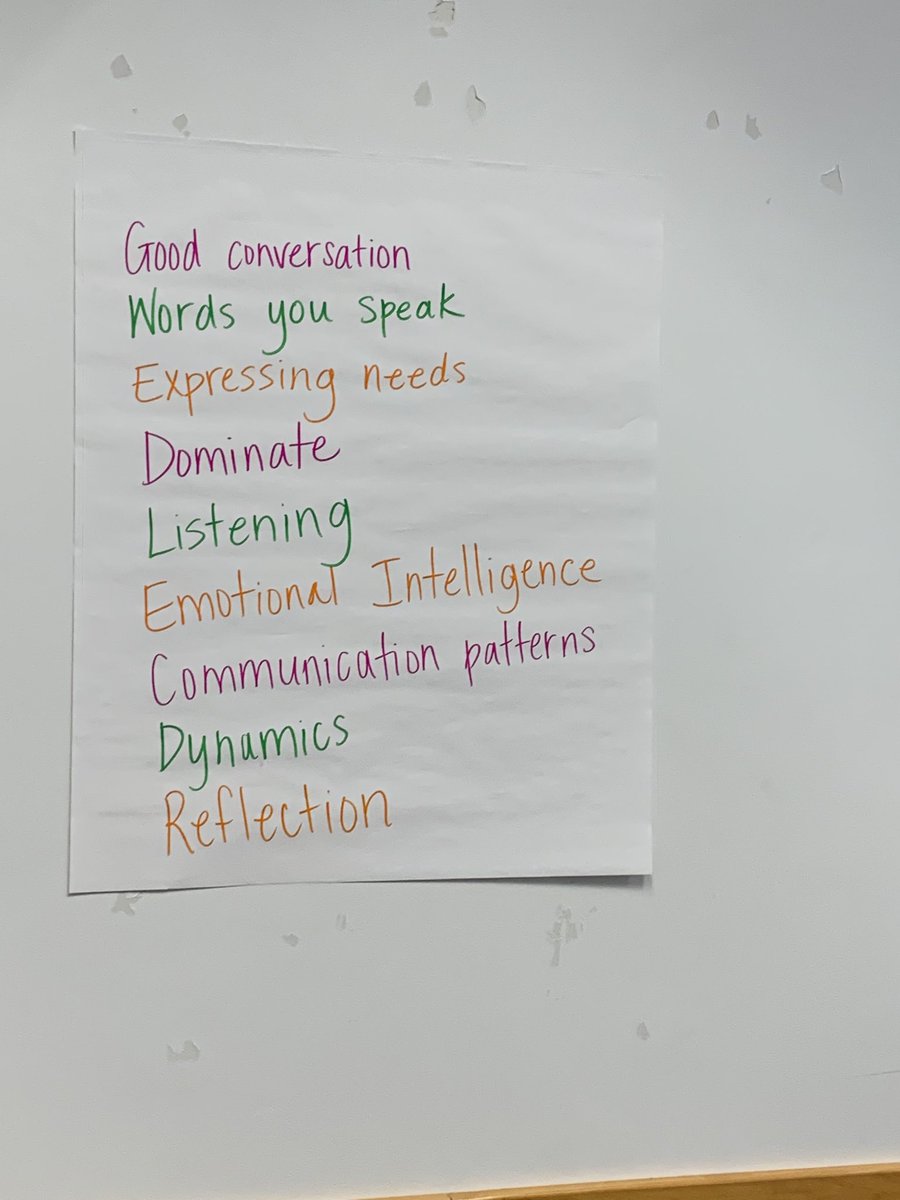 Good conversation
Words you speak
Expressing needs
Dominate
Listening
Emotional Intelligence
Communication patterns
Dynamics
Reflection